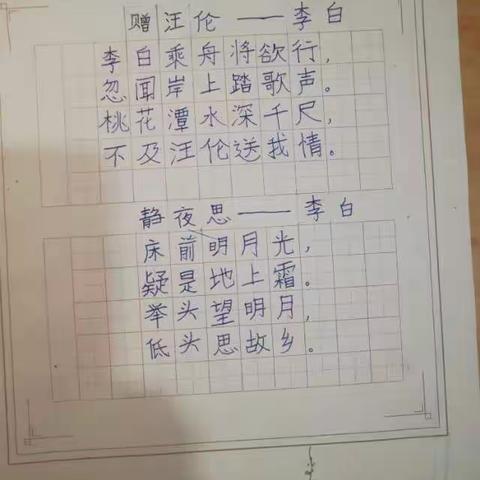 赠汪伦——李白
李白乘舟将欲行，
忽闻岸上踏歌声。
桃花潭水深千尺，
不及汪伦送我情。
静夜思——李白
床前明月光，
疑是地上霜。
举头望明月，
低头思故乡。